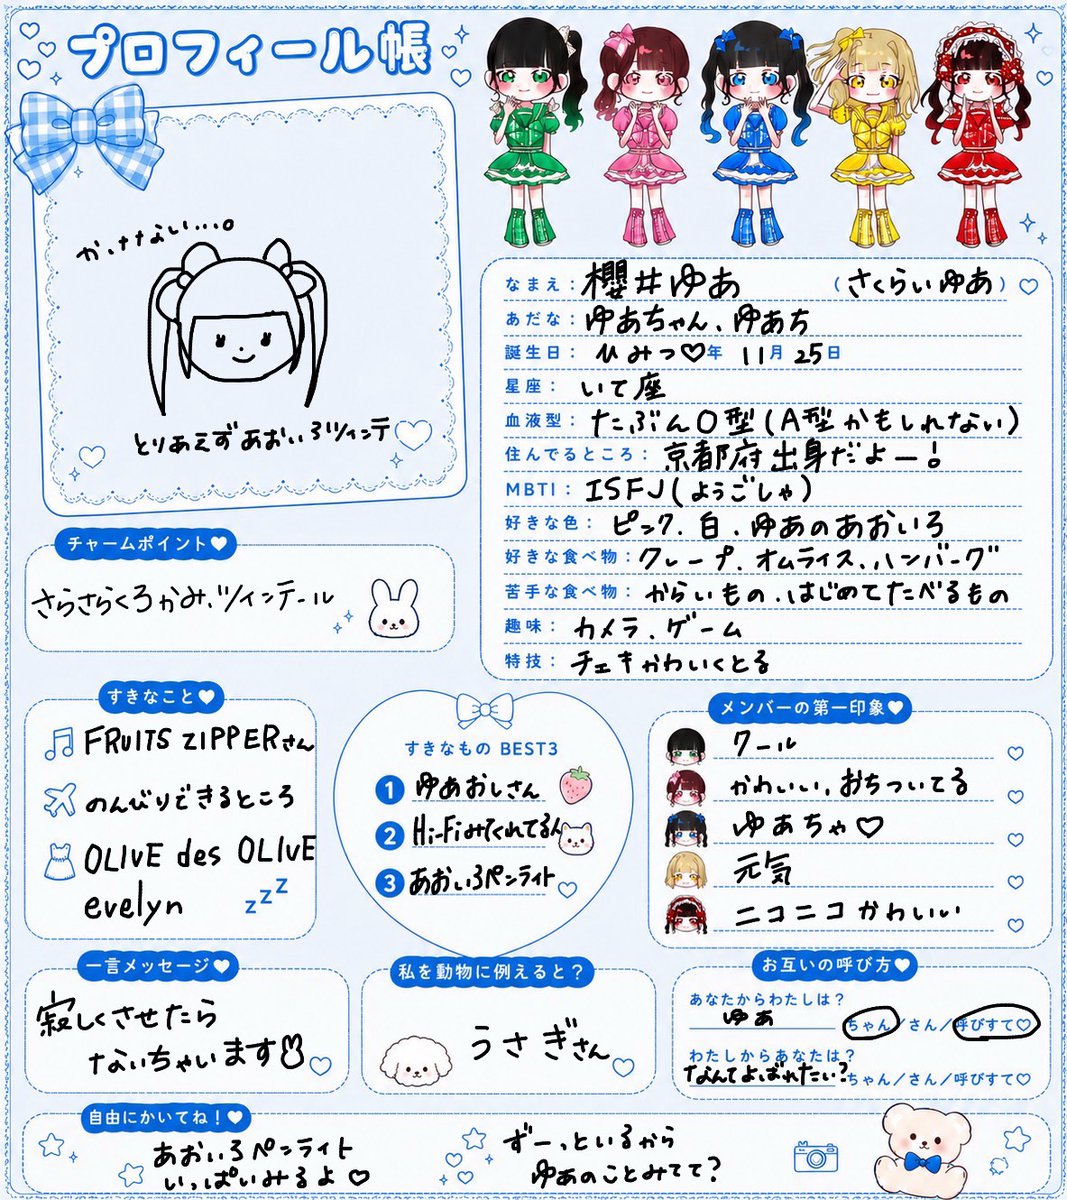 プロフィール帳
かけない...。
とりあえずあおいろツインテ
なまえ：櫻井ゆあ（さくらいゆあ）
あだな：ゆあちゃん、ゆあち
誕生日：ひみつ♡年 11月 25日
星座：いて座
血液型：たぶんO型(A型かもしれない)
住んでるところ：京都府出身だよー！
MBTI：ISFJ(ようごしゃ)
好きな色：ピンク、白、ゆあのあおいろ
好きな食べ物：クレープ、オムライス、ハンバーグ
苦手な食べ物：からいもの、はじめてたべるもの
趣味：カメラ、ゲーム
特技：チェキかわいくとる
チャームポイント♥
さらさらくろかみ、ツインテール
すきなこと♥
FRUITS ZIPPERさん
のんびりできるところ
OLIVE des OLIVE
evelyn
zzz
すきなもの BEST3
1 ゆあおしさん
2 Hi-Fiみてくれてる人
3 あおいろペンライト
メンバーの第一印象♥
クール
かわいい、おちついてる
ゆあちゃ♡
元気
ニコニコかわいい
一言メッセージ♥
寂しくさせたら
ないちゃいます
私を動物に例えると？
うさぎさん
お互いの呼び方♥
あなたからわたしは？
ゆあ ちゃん／さん／呼びすて♡
わたしからあなたは？
なんてよばれたい？ ちゃん／さん／呼びすて♡
自由にかいてね！♥
あおいろペンライト
いっぱいみるよ♡
ずーっといるから
ゆあのことみてて？